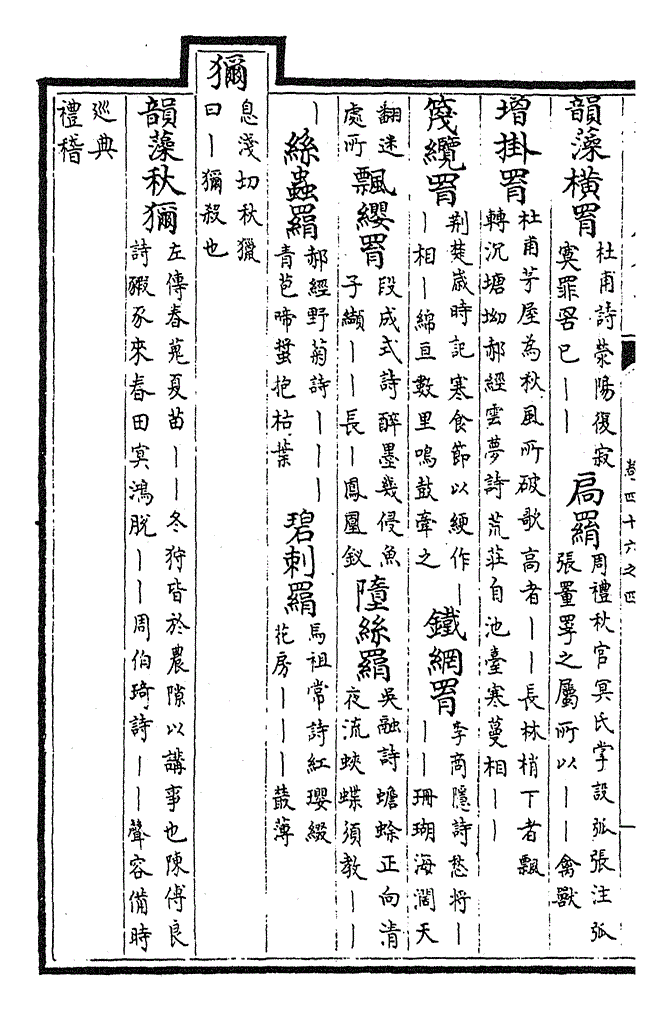 韻藻橫罥杜甫詩滎陽復寂
寞罪罟已丨丨扃羂周禮秋官冥氏掌設弧張注弧
張罿罦之屬所以丨丨禽獸
增掛罥杜甫茅屋為秋風所破歌高者丨丨長林梢下者飄
轉沉塘坳郝經雲夢詩荒莊自池臺寒蔓相丨丨
篾纜罥荆楚嵗時記寒食節以綆作丨
丨相丨綿亘數里鳴鼓牽之鐵網罥李商隱詩愁將丨
丨丨珊瑚海濶天
翻迷
處所飄纓罥段成式詩醉墨幾侵魚
子纈丨丨長丨鳳凰釵墮絲羂吳融詩蟾蜍正向清
夜流蛺蝶須教丨丨
丨絲蟲羂郝經野菊詩丨丨丨丨
青苞啼蛩抱枯葉碧刺羂馬祖常詩紅瓔綴
花房丨丨丨叢薄
獮息淺切秋獵
曰丨獮殺也
韻藻秋獮左傳春蒐夏苗丨丨冬狩皆於農隙以講事也陳傅良
詩豭豕來春田冥鴻脫丨丨周伯琦詩丨丨聲容備時
巡典
禮稽
卷四十六之四